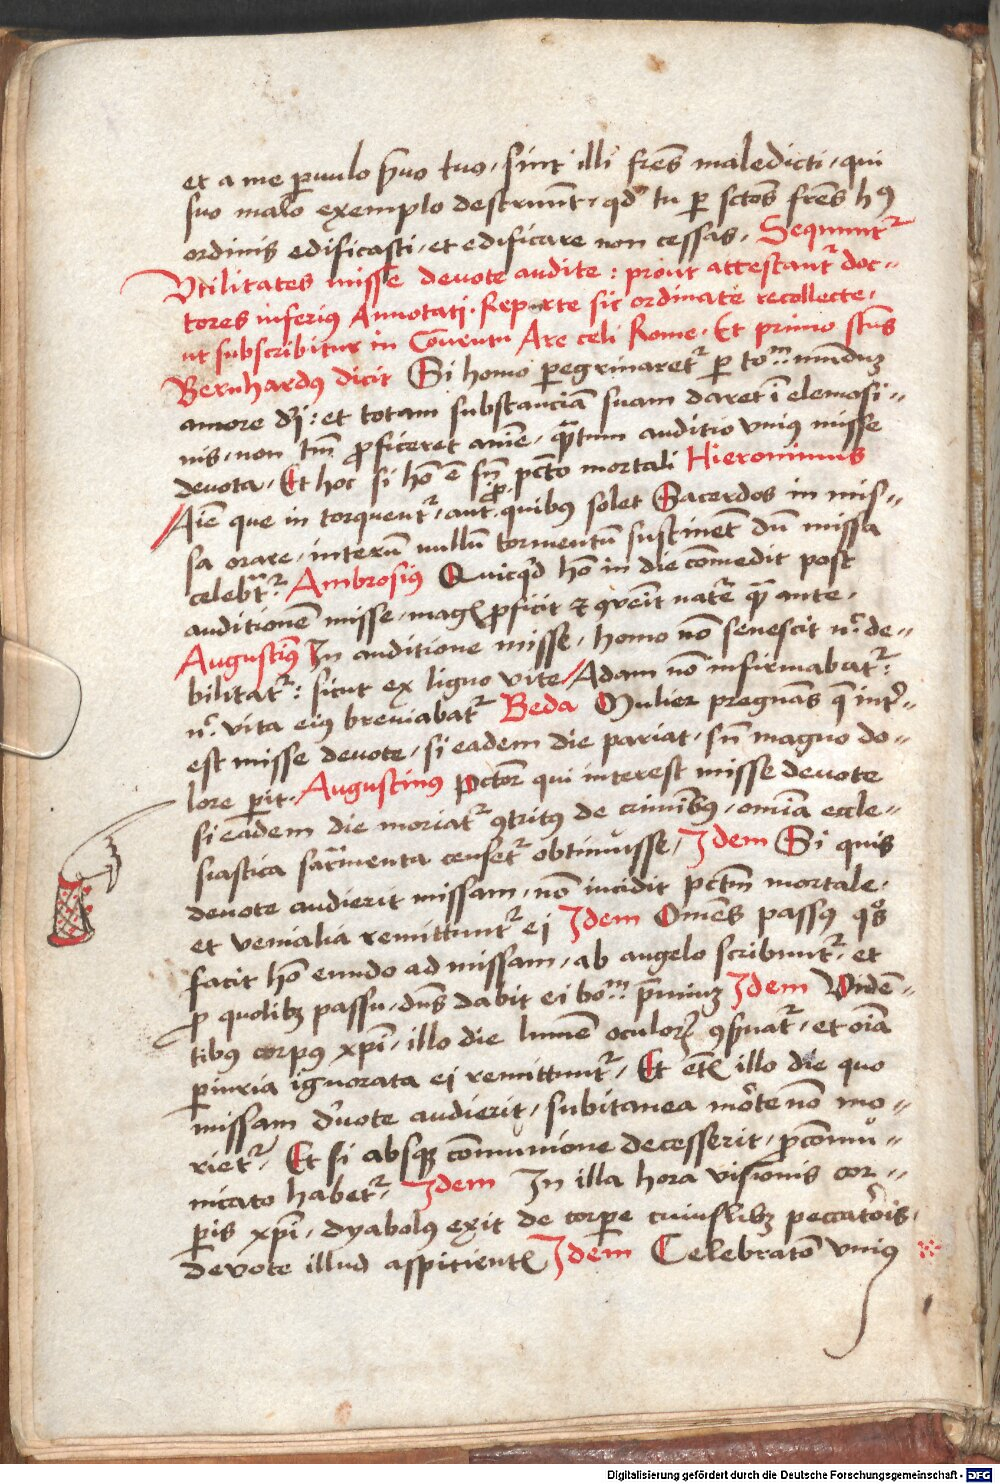 et a me paruulo ẜuo tuo, sint illi fr̄es maledicti, qui
suo malo exemplo destruūt, qd̕ tu ꝑ sctōs fr̄es hꝰ
ordinis edificasti, et edificare non cessas. Sequunt᷑
Vtilitates misse deuote audite: prout attestant᷑ doc-
tores inferiꝰ Annotati. Reperte sic ordinate recollecte.
ut subscribitur in Conuentu Are celi Rome. Et primo sctūs
Bernhardꝰ dicit Si homo ꝑegrinaret᷑ ꝑ totm̄ mūduꝫ
amore dj̄: et totam substanciā suam daret ī elemosi-
nis, non tm̄ ꝓficeret anīe, qᷓtum auditio vniꝰ misse
deuota, Et hoc si hō ē sn̄ pctō mortali Hieronimus
Aīe que in torquent᷑, aut ꝓ quibꝰ solet Sacerdos in mis-
sa orare, interim̄ nullū tormentū sustinēt dū missa
celebrat᷑. Ambrosius Quicqͥd hō in die comedit post
auditionē misse, magꝭ ꝓficit et ꝯuēit natē qᷓ ante.
Augustinꝰ In auditione misse, homo nō senescit nͨ de-
bilitat᷑: sicut ex ligno vite Adam nō infirmabat᷑:
nͨ vita eiꝰ breuiabat᷑ Beda Mulier pregnās q̄ int̕-
est misse deuote, si eadem die pariat, sn̄ magno do-
lore ꝑit. Augustinus Pctōr qui interest misse deuote
si eadem die moriat᷑ ꝯtritꝰ de criminibꝰ, omīa eccle-
siastica sacramenta censet᷑ obtinuisse, Idem Si quis
deuote audierit missam, nō incidit pctm̄ mortale,
et venialia remittunt᷑ ej Idem Omēs passꝰ qͦs
facit hō eundo ad missam, ab angelo scribunt᷑, et
ꝓ quolibꝫ passu, dn̄s dabit ei bonū p̄miuꝫ Idem Vidē-
tibꝰ corpꝰ xp̄i, illo die lumē oculoꝝ ꝯẜuat᷑, et oīa
ꝑiuria ignorata ej remittunt᷑, Et etꝭ illo die quo
missam deuote audierit, subitanea morte nō mo-
riet᷑, Et si absqꝫ cōmunione decesserit, ꝓ cōmū-
nicato habet᷑, Idem In illa hora visionis cor-
ꝑis xp̄i, dyabolꝰ exit de corꝑe cuiuslibꝫ peccatoris,
deuote illud aspicientꝭ Idem Celebratō vniꝰ
Digitalisierung gefördert durch die Deutsche Forschungsgemeinschaft - DFG